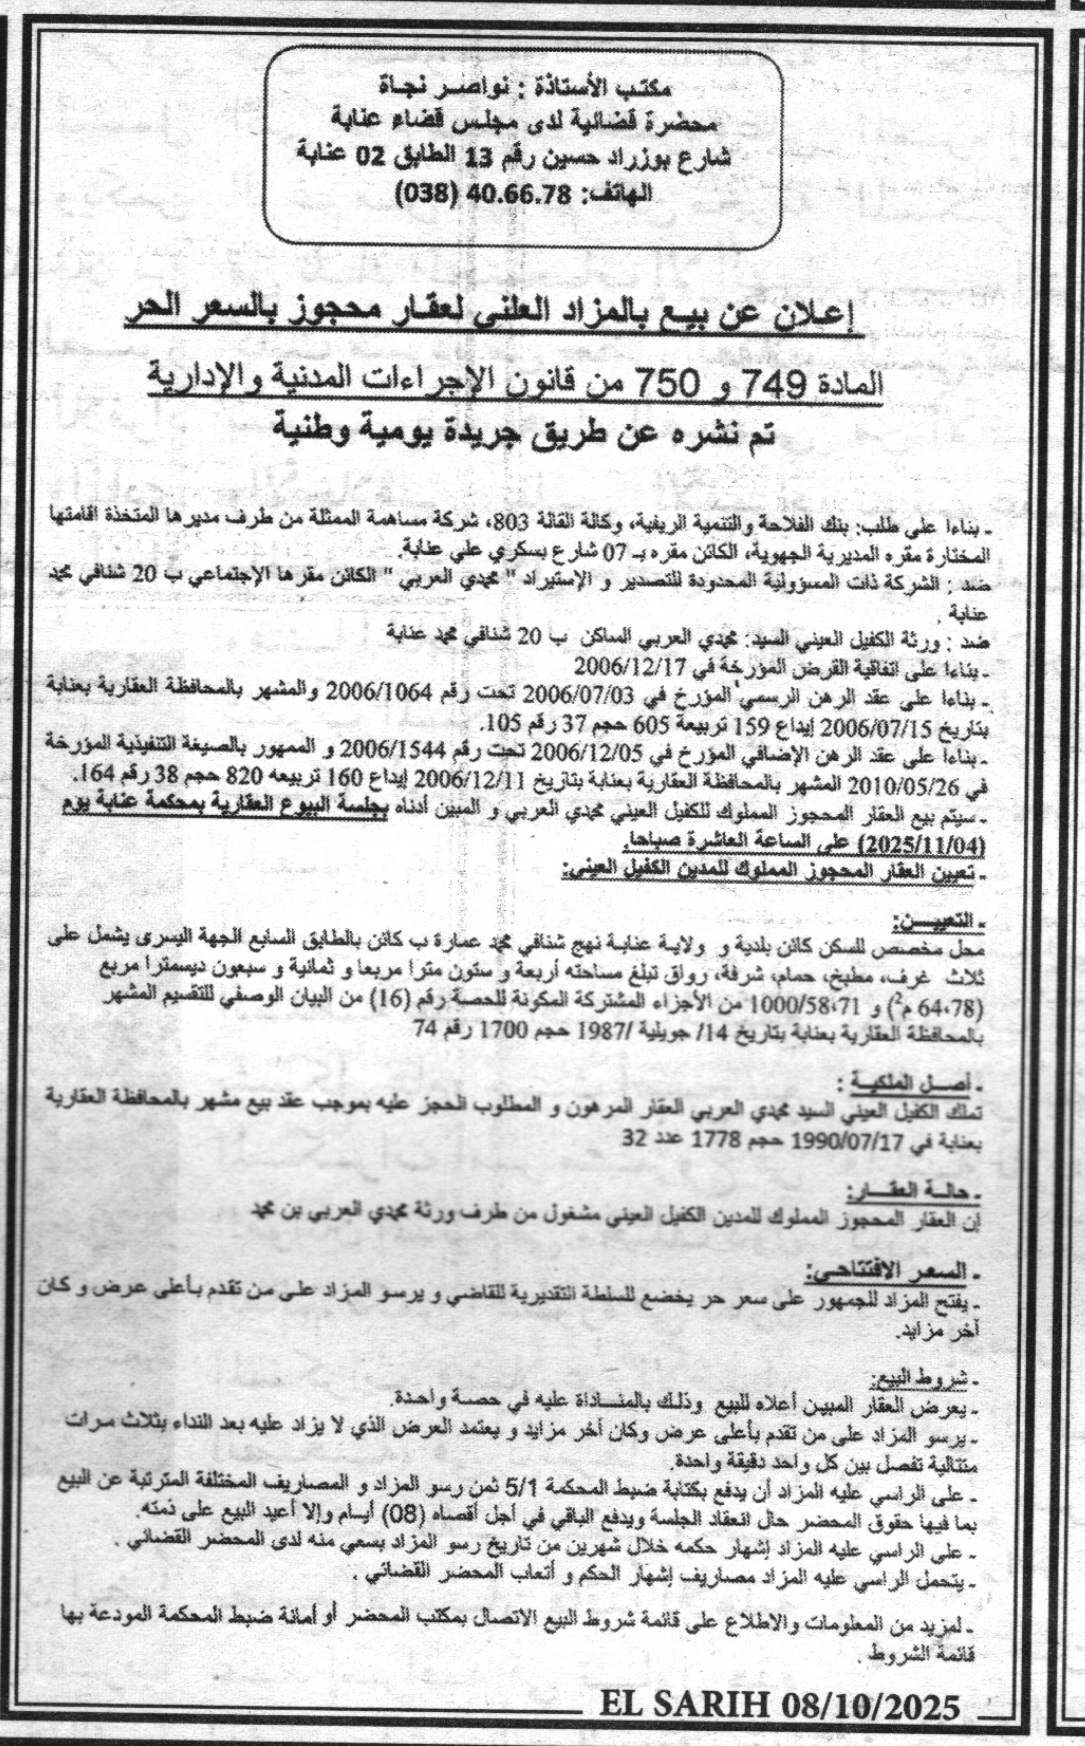 مكتب الأستاذة : نواصر نجاة
محضرة قضائية لدى مجلس قضاء عنابة
شارع بوزراد حسين رقم 13 الطابق 02 عنابة
الهاتف: 40.66.78 (038)
إعلان عن بيع بالمزاد العلني لعقار محجوز بالسعر الحر
المادة 749 و 750 من قانون الإجراءات المدنية والإدارية
تم نشره عن طريق جريدة يومية وطنية
- بناءا على طلب: بنك الفلاحة والتنمية الريفية، وكالة القالة 803، شركة مساهمة الممثلة من طرف مديرها المتخذة اقامتها
المختارة مقره المديرية الجهوية، الكائن مقره بـ 07 شارع بسكري علي عنابة.
ضد : الشركة ذات المسؤولية المحدودة للتصدير و الإستيراد " محمدي العربي " الكائن مقرها الإجتماعي ب 20 شنافي محمد
عنابة .
ضد : ورثة الكفيل العيني السيد: محمدي العربي الساكن ب 20 شنافي محمد عنابة
- بناءا على اتفاقية القرض المؤرخة في 2006/12/17
- بناءا على عقد الرهن الرسمي المؤرخ في 2006/07/03 تحت رقم 2006/1064 والمشهر بالمحافظة العقارية بعنابة
بتاريخ 2006/07/15 إيداع 159 تربيعة 605 حجم 37 رقم 105.
- بناءا على عقد الرهن الإضافي المؤرخ في 2006/12/05 تحت رقم 2006/1544 و الممهور بالصيغة التنفيذية المؤرخة
في 2010/05/26 المشهر بالمحافظة العقارية بعنابة بتاريخ 2006/12/11 إيداع 160 تربيعه 820 حجم 38 رقم 164.
- سيتم بيع العقار المحجوز المملوك للكفيل العيني محمدي العربي و المبين أدناه بجلسة البيوع العقارية بمحكمة عنابة يوم
(2025/11/04) على الساعة العاشرة صباحا.
- تعيين العقار المحجوز المملوك للمدين الكفيل العيني:
- التعييـــن:
محل مخصص للسكن كائن بلدية و ولاية عنابة نهج شنافي محمد عمارة ب كائن بالطابق السابع الجهة اليسرى يشمل على
ثلاث غرف، مطبخ، حمام، شرفة، رواق تبلغ مساحته أربعة و ستون مترا مربعا و ثمانية و سبعون ديسمترا مربع
(64،78 م²) و 1000/58،71 من الأجزاء المشتركة المكونة للحصة رقم (16) من البيان الوصفي للتقسيم المشهر
بالمحافظة العقارية بعنابة بتاريخ 14/ جويلية /1987 حجم 1700 رقم 74
- أصـل الملكيـة :
تملك الكفيل العيني السيد محمدي العربي العقار المرهون و المطلوب الحجز عليه بموجب عقد بيع مشهر بالمحافظة العقارية
بعنابة في 1990/07/17 حجم 1778 عدد 32
- حالـة العقـار:
إن العقار المحجوز المملوك للمدين الكفيل العيني مشغول من طرف ورثة محمدي العربي بن محمد
- السعر الافتتاحي:
- يفتح المزاد للجمهور على سعر حر يخضع للسلطة التقديرية للقاضي و يرسو المزاد على من تقدم بأعلى عرض و كان
آخر مزايد.
- شروط البيع:
- يعرض العقار المبين أعلاه للبيع وذلك بالمنـاداة عليه في حصة واحدة.
- يرسو المزاد على من تقدم بأعلى عرض وكان أخر مزايد و يعتمد العرض الذي لا يزاد عليه بعد النداء بثلاث مرات
متتالية تفصل بين كل واحد دقيقة واحدة.
- على الراسي عليه المزاد أن يدفع بكتابة ضبط المحكمة 5/1 ثمن رسو المزاد و المصاريف المختلفة المترتبة عن البيع
بما فيها حقوق المحضر حال انعقاد الجلسة ويدفع الباقي في أجل أقصاه (08) أيام وإلا أعيد البيع على ذمته.
- على الراسي عليه المزاد إشهار حكمه خلال شهرين من تاريخ رسو المزاد بسعي منه لدى المحضر القضائي .
- يتحمل الراسي عليه المزاد مصاريف إشهار الحكم و أتعاب المحضر القضائي .
- لمزيد من المعلومات والاطلاع على قائمة شروط البيع الاتصال بمكتب المحضر أو أمانة ضبط المحكمة المودعة بها
قائمة الشروط .
EL SARIH 08/10/2025